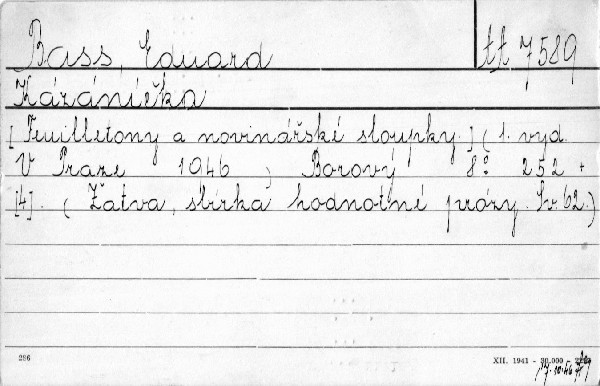 Bass, Eduard
tt 7589
Kázáníčka
[Feuilletony a novinářské sloupky.] (1. vyd.
V Praze 1046, Borový 8° 252 +
[4]. (Žatva, sbírka hodnotné prózy. Sv. 62.)
286
XII. 1941 - 30.000
17.10.46